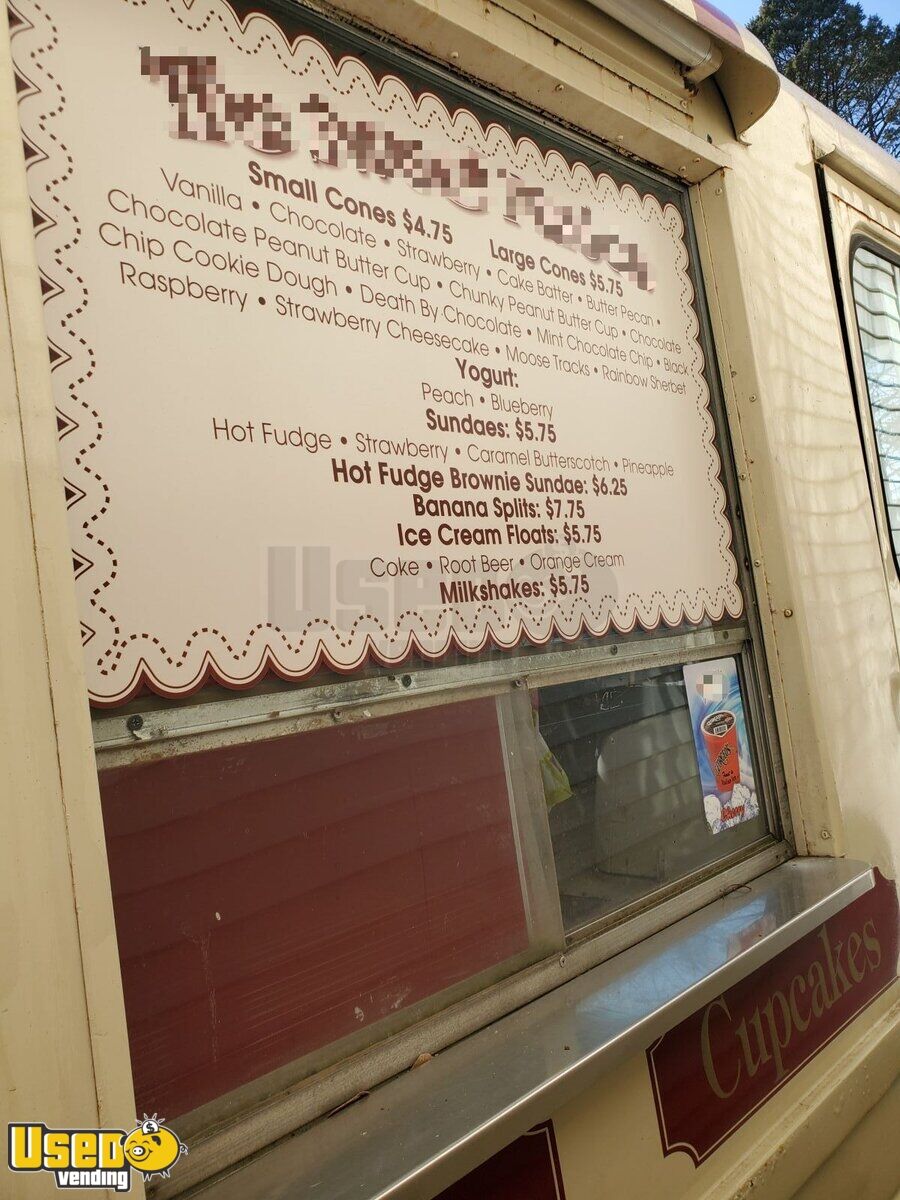 Small Cones $4.75 Large Cones $5.75
Vanilla • Chocolate • Strawberry • Cake Batter • Butter Pecan •
Chocolate Peanut Butter Cup • Chunky Peanut Butter Cup • Chocolate
Chip Cookie Dough • Death By Chocolate • Mint Chocolate Chip • Black
Raspberry • Strawberry Cheesecake • Moose Tracks • Rainbow Sherbet
Yogurt:
Peach • Blueberry
Sundaes: $5.75
Hot Fudge • Strawberry • Caramel Butterscotch • Pineapple
Hot Fudge Brownie Sundae: $6.25
Banana Splits: $7.75
Ice Cream Floats: $5.75
Coke • Root Beer • Orange Cream
Milkshakes: $5.75
Cupcakes
USED
vending